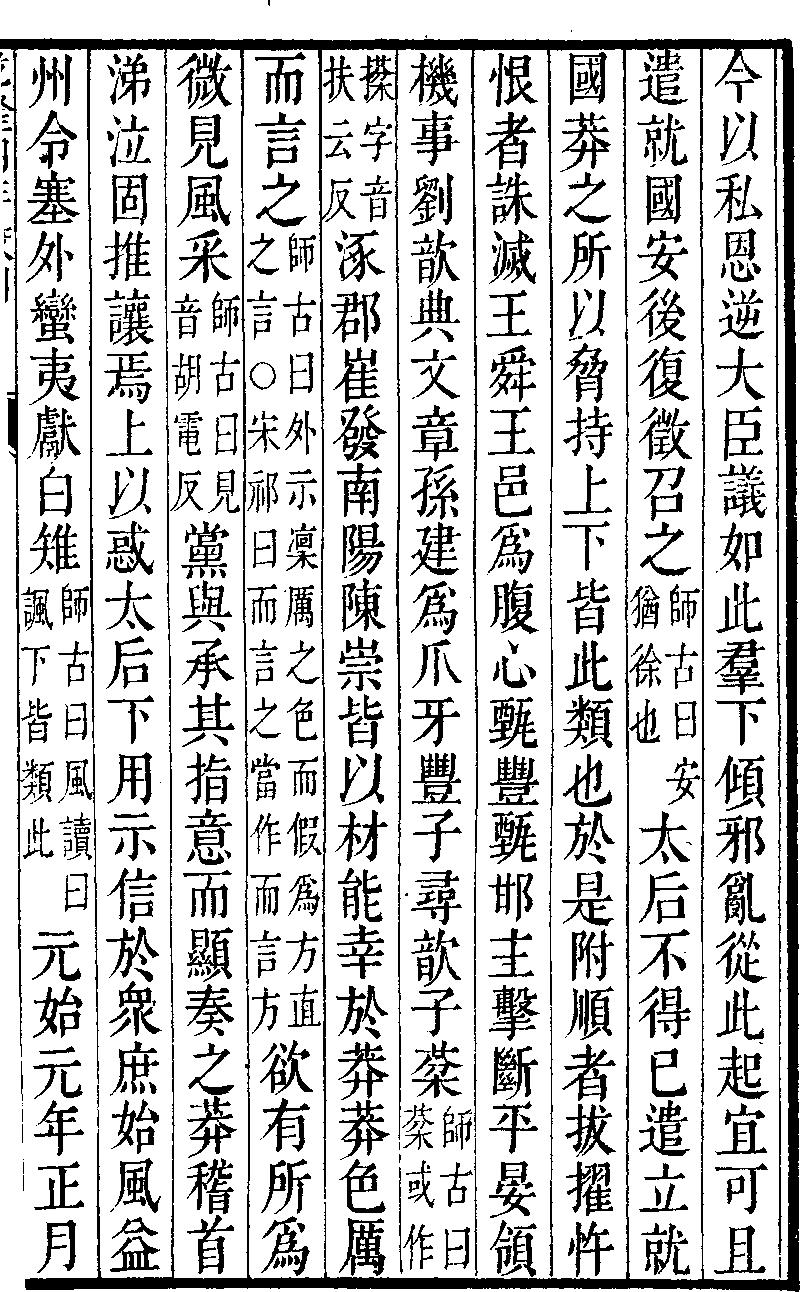 今以私恩逆大臣議如此羣下傾邪亂從此起宜可且
遣就國安後復徵召之師古曰安猶徐也太后不得已遣立就
國莽之所以脅持上下皆此類也於是附順者拔擢忤
恨者誅滅王舜王邑爲腹心甄豐甄邯主擊斷平晏領
機事劉歆典文章孫建爲爪牙豐子尋歆子棻師古曰棻或作
字音扶云反涿郡崔發南陽陳崇皆以材能幸於莽莽色厲
而言之師古曰外示凜厲之色而假爲方直之言○宋祁曰而言之當作而言方欲有所爲
微見風采師古曰見音胡電反黨與承其指意而顯奏之莽稽首
涕泣固推讓焉上以惑太后下用示信於衆庶始風益
州令塞外蠻夷獻白雉師古曰風讀曰諷下皆類此元始元年正月